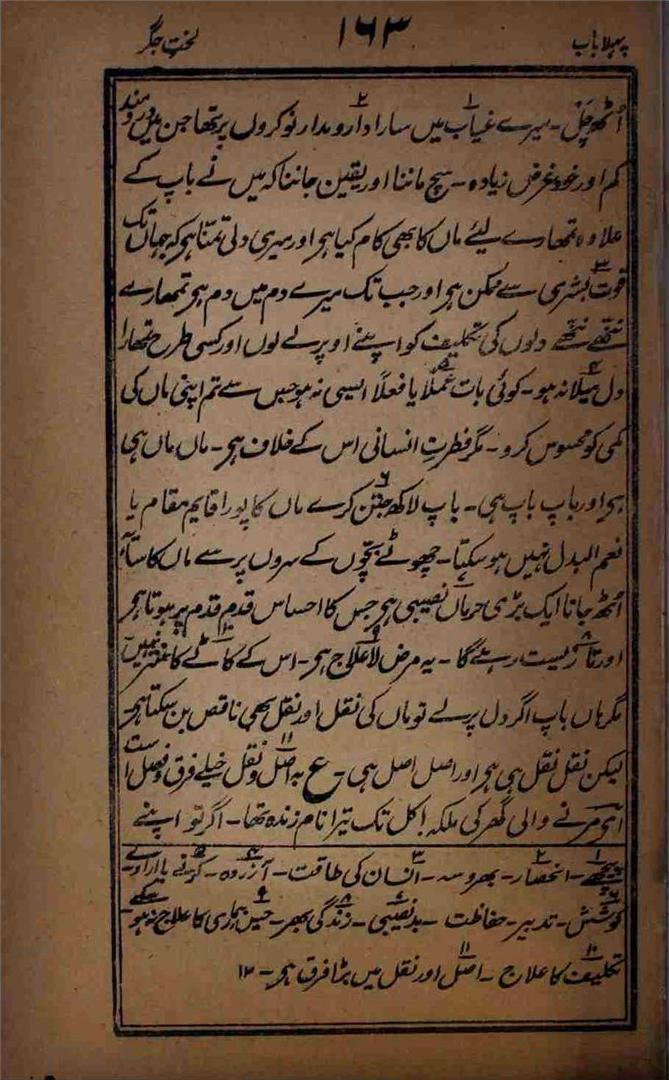 پہلا باب ۱۶۳ لختِ جگر
اُٹھ چل۔ میرے غیاب۱ میں سارا دار و مدار۲ نوکروں پر تھا جن میں درد مند
کم اور خود غرض زیادہ۔ سچ ماننا اور یقین جاننا کہ میں نے باپ کے
علاوہ تمھارے لیئے ماں کا بھی کام کیا ہی اور میری دلی تمنّا ہی کہ جہاں تک
قوت بشری۳ سے ممکن ہی اور جب تک میرے دم میں دم ہی تمھارے
ننھے ننھے دلوں کی تکلیف کو اپنے اوپر لے لوں اور کسی طرح تمھارا
دل میلا۴ نہ ہو۔ کوئی بات عملاً۵ یا فعلاً ایسی نہ ہو جس سے تم اپنی ماں کی
کمی کو محسوس کرو۔ مگر فطرتِ انسانی اس کے خلاف ہی۔ ماں ماں ہی
ہی اور باپ باپ ہی۔ باپ لاکھ جتن۶ کرے ماں کا پورا قایم مقام یا
نعم البدل نہیں ہو سکتا۔ چھوٹے بچّوں کے سروں پر سے ماں کا سایہ
اُٹھ جانا ایک بڑی حرماں نصیبی۷ ہی جس کا احساس قدم قدم پر ہوتا ہی
اور تا زیست۸ رہے گا۔ یہ مرض لاعلاج۹ ہی۔ اس کے کاٹے کا منتر۱۰ نہیں
مگر ہاں باپ اگر دل پر لے تو ماں کی نقل اور نقل بھی ناقص بن سکتا ہی
لیکن نقل نقل ہی ہی اور اصل اصل ہی۔ ع بہ اصل۱۱ و نقل خیلے فرق و فصل است
ای مرنے والی گھر کی ملکہ! کل تک تیرا نام زندہ تھا۔ اگر تو اپنے
۱ پیچھے۔ ۲ انحصار۔ بھروسہ۔ ۳ انسان کی طاقت۔ ۴ آزردہ۔ ۵ کرنے یا ارادے
۶ کوشش۔ تدبیر۔ حفاظت۔ ۷ بدنصیبی۔ ۸ زندگی بھر۔ ۹ جس بیماری کا علاج نہ ہو سکے۔
۱۰ تکلیف کا علاج۔ ۱۱ اصل اور نقل میں بڑا فرق ہی۔ ۱۲